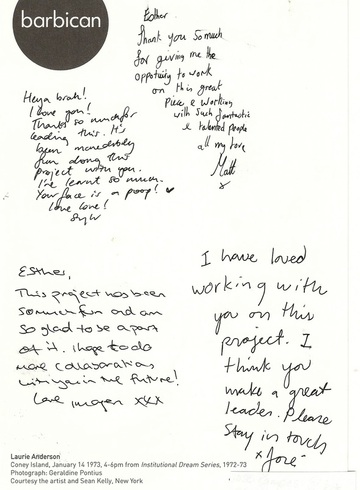 barbican
Esther
Thank you so much
for giving me the
oppotuity to work
on this great
Piece & working
with such fantastic
& talented people
all my love
Matt
x
Heya brah!
I love you!
Thanks so much for
leading this. It's
been incredibly
fun doing this
project with you.
I've learnt so much.
Your face is a poop! ♥
Love Love!
Esther,
This project has been
so much fun and am
so glad to be a part
of it. I hope to do
more collaborations
with you in the future!
Love Imogen xxx
I have loved
working with
you on this
project. I
think you
make a great
leader. Please
stay in touch
x José
Laurie Anderson
Coney Island, January 14 1973, 4-6pm from Institutional Dream Series, 1972-73
Photograph: Geraldine Pontius
Courtesy the artist and Sean Kelly, New York